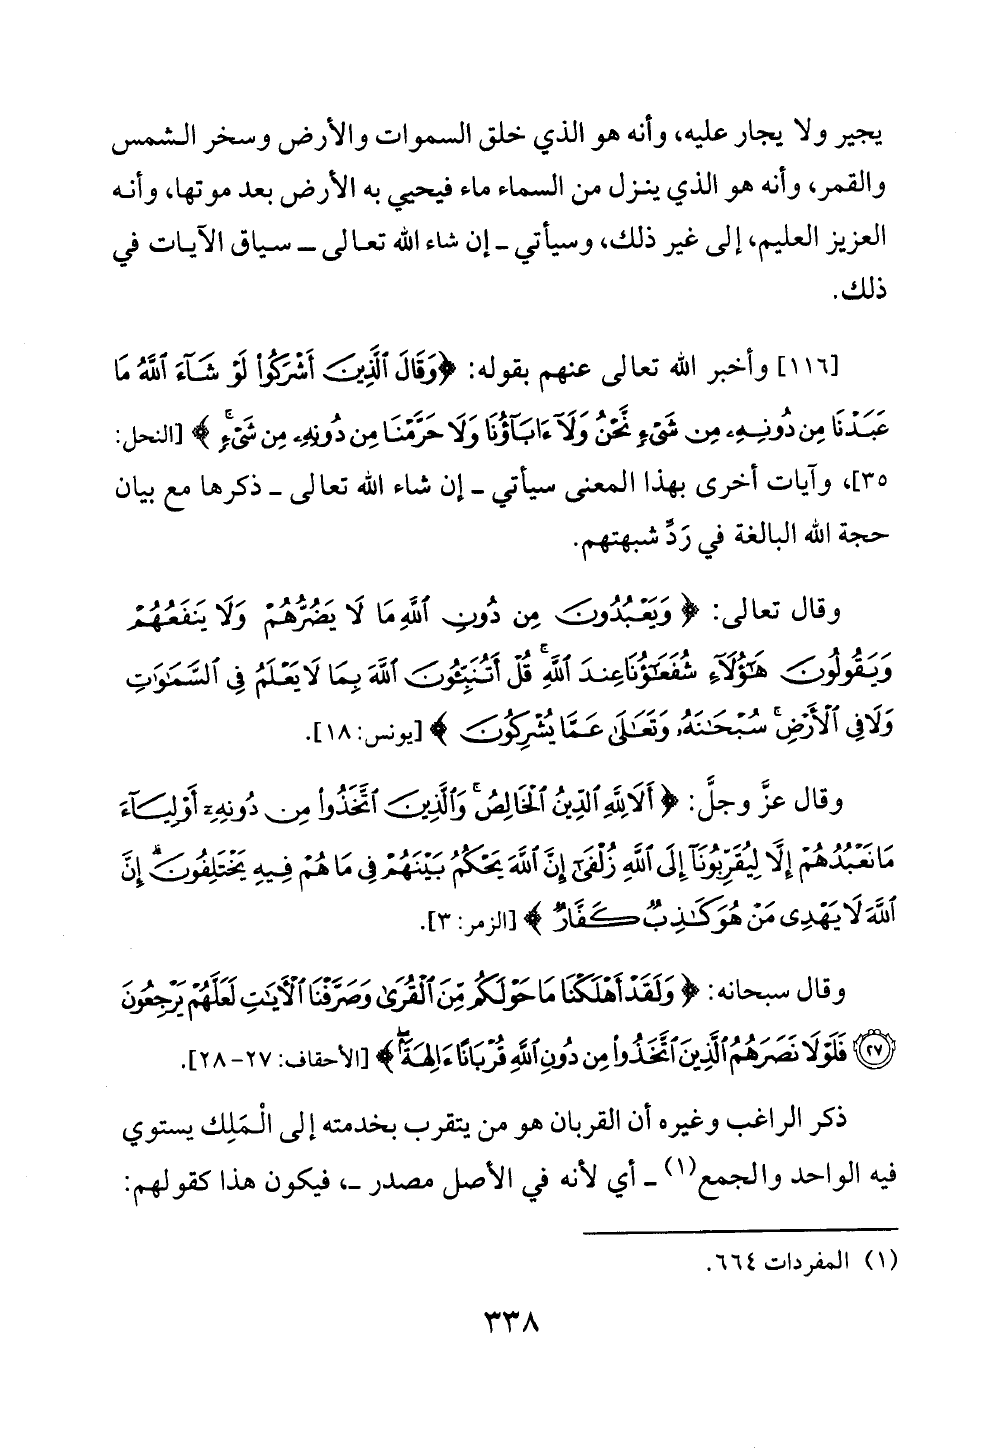 يجير ولا يجار عليه، وأنه هو الذي خلق السموات والأرض وسخر الشمس
والقمر، وأنه هو الذي ينزل من السماء ماء فيحيي به الأرض بعد موتها، وأنه
العزيز العليم، إلى غير ذلك، وسيأتي ـ إن شاء الله تعالى ـ سياق الآيات في
ذلك.
[١١٦] وأخبر الله تعالى عنهم بقوله: ﴿وَقَالَ ٱلَّذِينَ أَشْرَكُوا۟ لَوْ شَآءَ ٱللَّهُ مَا
عَبَدْنَا مِن دُونِهِۦ مِن شَىْءٍ نَّحْنُ وَلَآ ءَابَآؤُنَا وَلَا حَرَّمْنَا مِن دُونِهِۦ مِن شَىْءٍۚ﴾ [النحل:
٣٥]، وآيات أخرى بهذا المعنى سيأتي ـ إن شاء الله تعالى ـ ذكرها مع بيان
حجة الله البالغة في رَدِّ شبهتهم.
وقال تعالى: ﴿وَيَعْبُدُونَ مِن دُونِ ٱللَّهِ مَا لَا يَضُرُّهُمْ وَلَا يَنفَعُهُمْ
وَيَقُولُونَ هَٰٓؤُلَآءِ شُفَعَٰٓؤُنَا عِندَ ٱللَّهِۚ قُلْ أَتُنَبِّـُٔونَ ٱللَّهَ بِمَا لَا يَعْلَمُ فِى ٱلسَّمَٰوَٰتِ
وَلَا فِى ٱلْأَرْضِۚ سُبْحَٰنَهُۥ وَتَعَٰلَىٰ عَمَّا يُشْرِكُونَ﴾ [يونس: ١٨].
وقال عزَّ وجلَّ: ﴿أَلَا لِلَّهِ ٱلدِّينُ ٱلْخَالِصُۚ وَٱلَّذِينَ ٱتَّخَذُوا۟ مِن دُونِهِۦٓ أَوْلِيَآءَ
مَا نَعْبُدُهُمْ إِلَّا لِيُقَرِّبُونَآ إِلَى ٱللَّهِ زُلْفَىٰٓ إِنَّ ٱللَّهَ يَحْكُمُ بَيْنَهُمْ فِى مَا هُمْ فِيهِ يَخْتَلِفُونَۗ إِنَّ
ٱللَّهَ لَا يَهْدِى مَنْ هُوَ كَٰذِبٌ كَفَّارٌ﴾ [الزمر: ٣].
وقال سبحانه: ﴿وَلَقَدْ أَهْلَكْنَا مَا حَوْلَكُم مِّنَ ٱلْقُرَىٰ وَصَرَّفْنَا ٱلْآيَٰتِ لَعَلَّهُمْ يَرْجِعُونَ
(٢٧) فَلَوْلَا نَصَرَهُمُ ٱلَّذِينَ ٱتَّخَذُوا۟ مِن دُونِ ٱللَّهِ قُرْبَانًا ءَالِهَةًۖ﴾ [الأحقاف: ٢٧-٢٨].
ذكر الراغب وغيره أن القربان هو من يتقرب بخدمته إلى الْمَلِك يستوي
فيه الواحد والجمع(١) ـ أي لأنه في الأصل مصدر ـ، فيكون هذا كقولهم:
(١) المفردات ٦٦٤.
٣٣٨